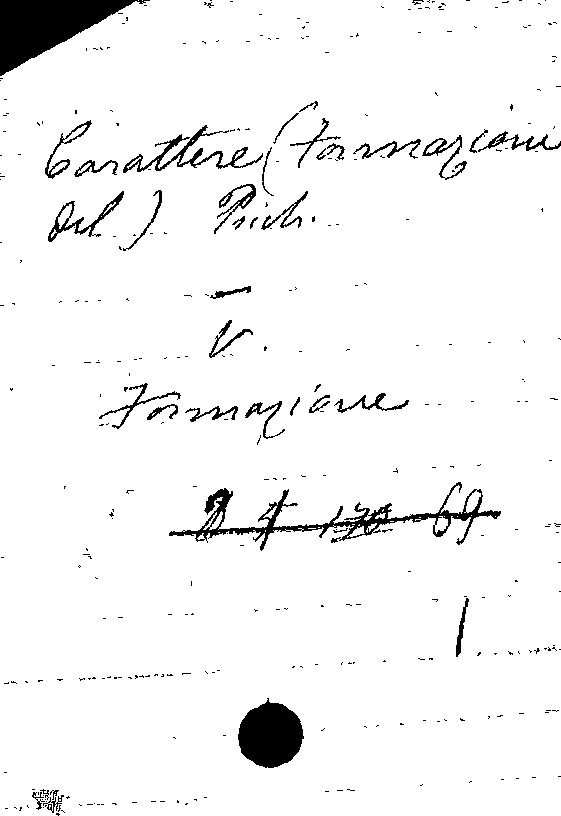 Carattere (Formazione
del) Psich.
—
V.
Formazione
69
1